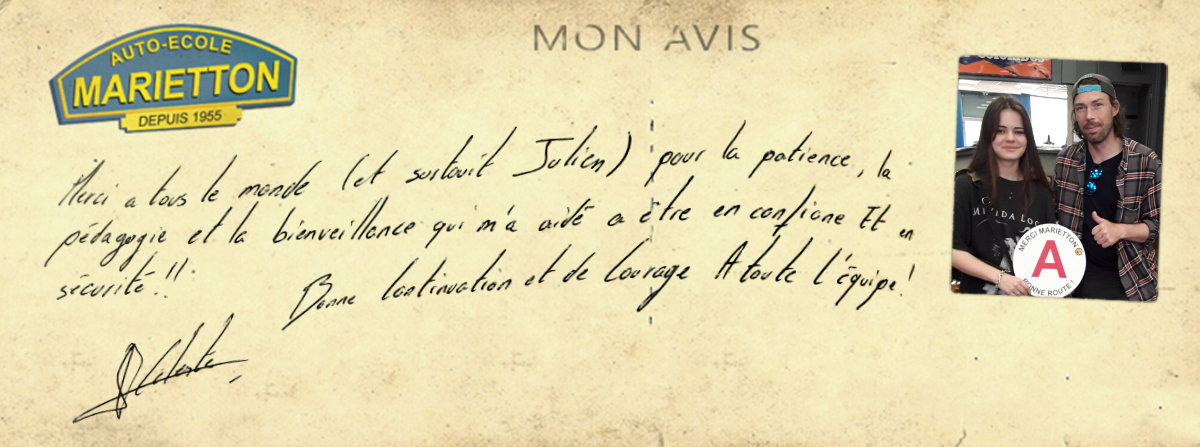 AUTO-ECOLE
MARIETTON
DEPUIS 1955
MON AVIS
Merci a tous le monde (et surtout Julien) pour la patience, la
pédagogie et la bienveillance qui m'a aidé a être en confiance Et en
sécurité!!
Bonne Continuation et de Courage A toute l'équipe!
Celeste
MERCI MARIETTON
A
BONNE ROUTE !